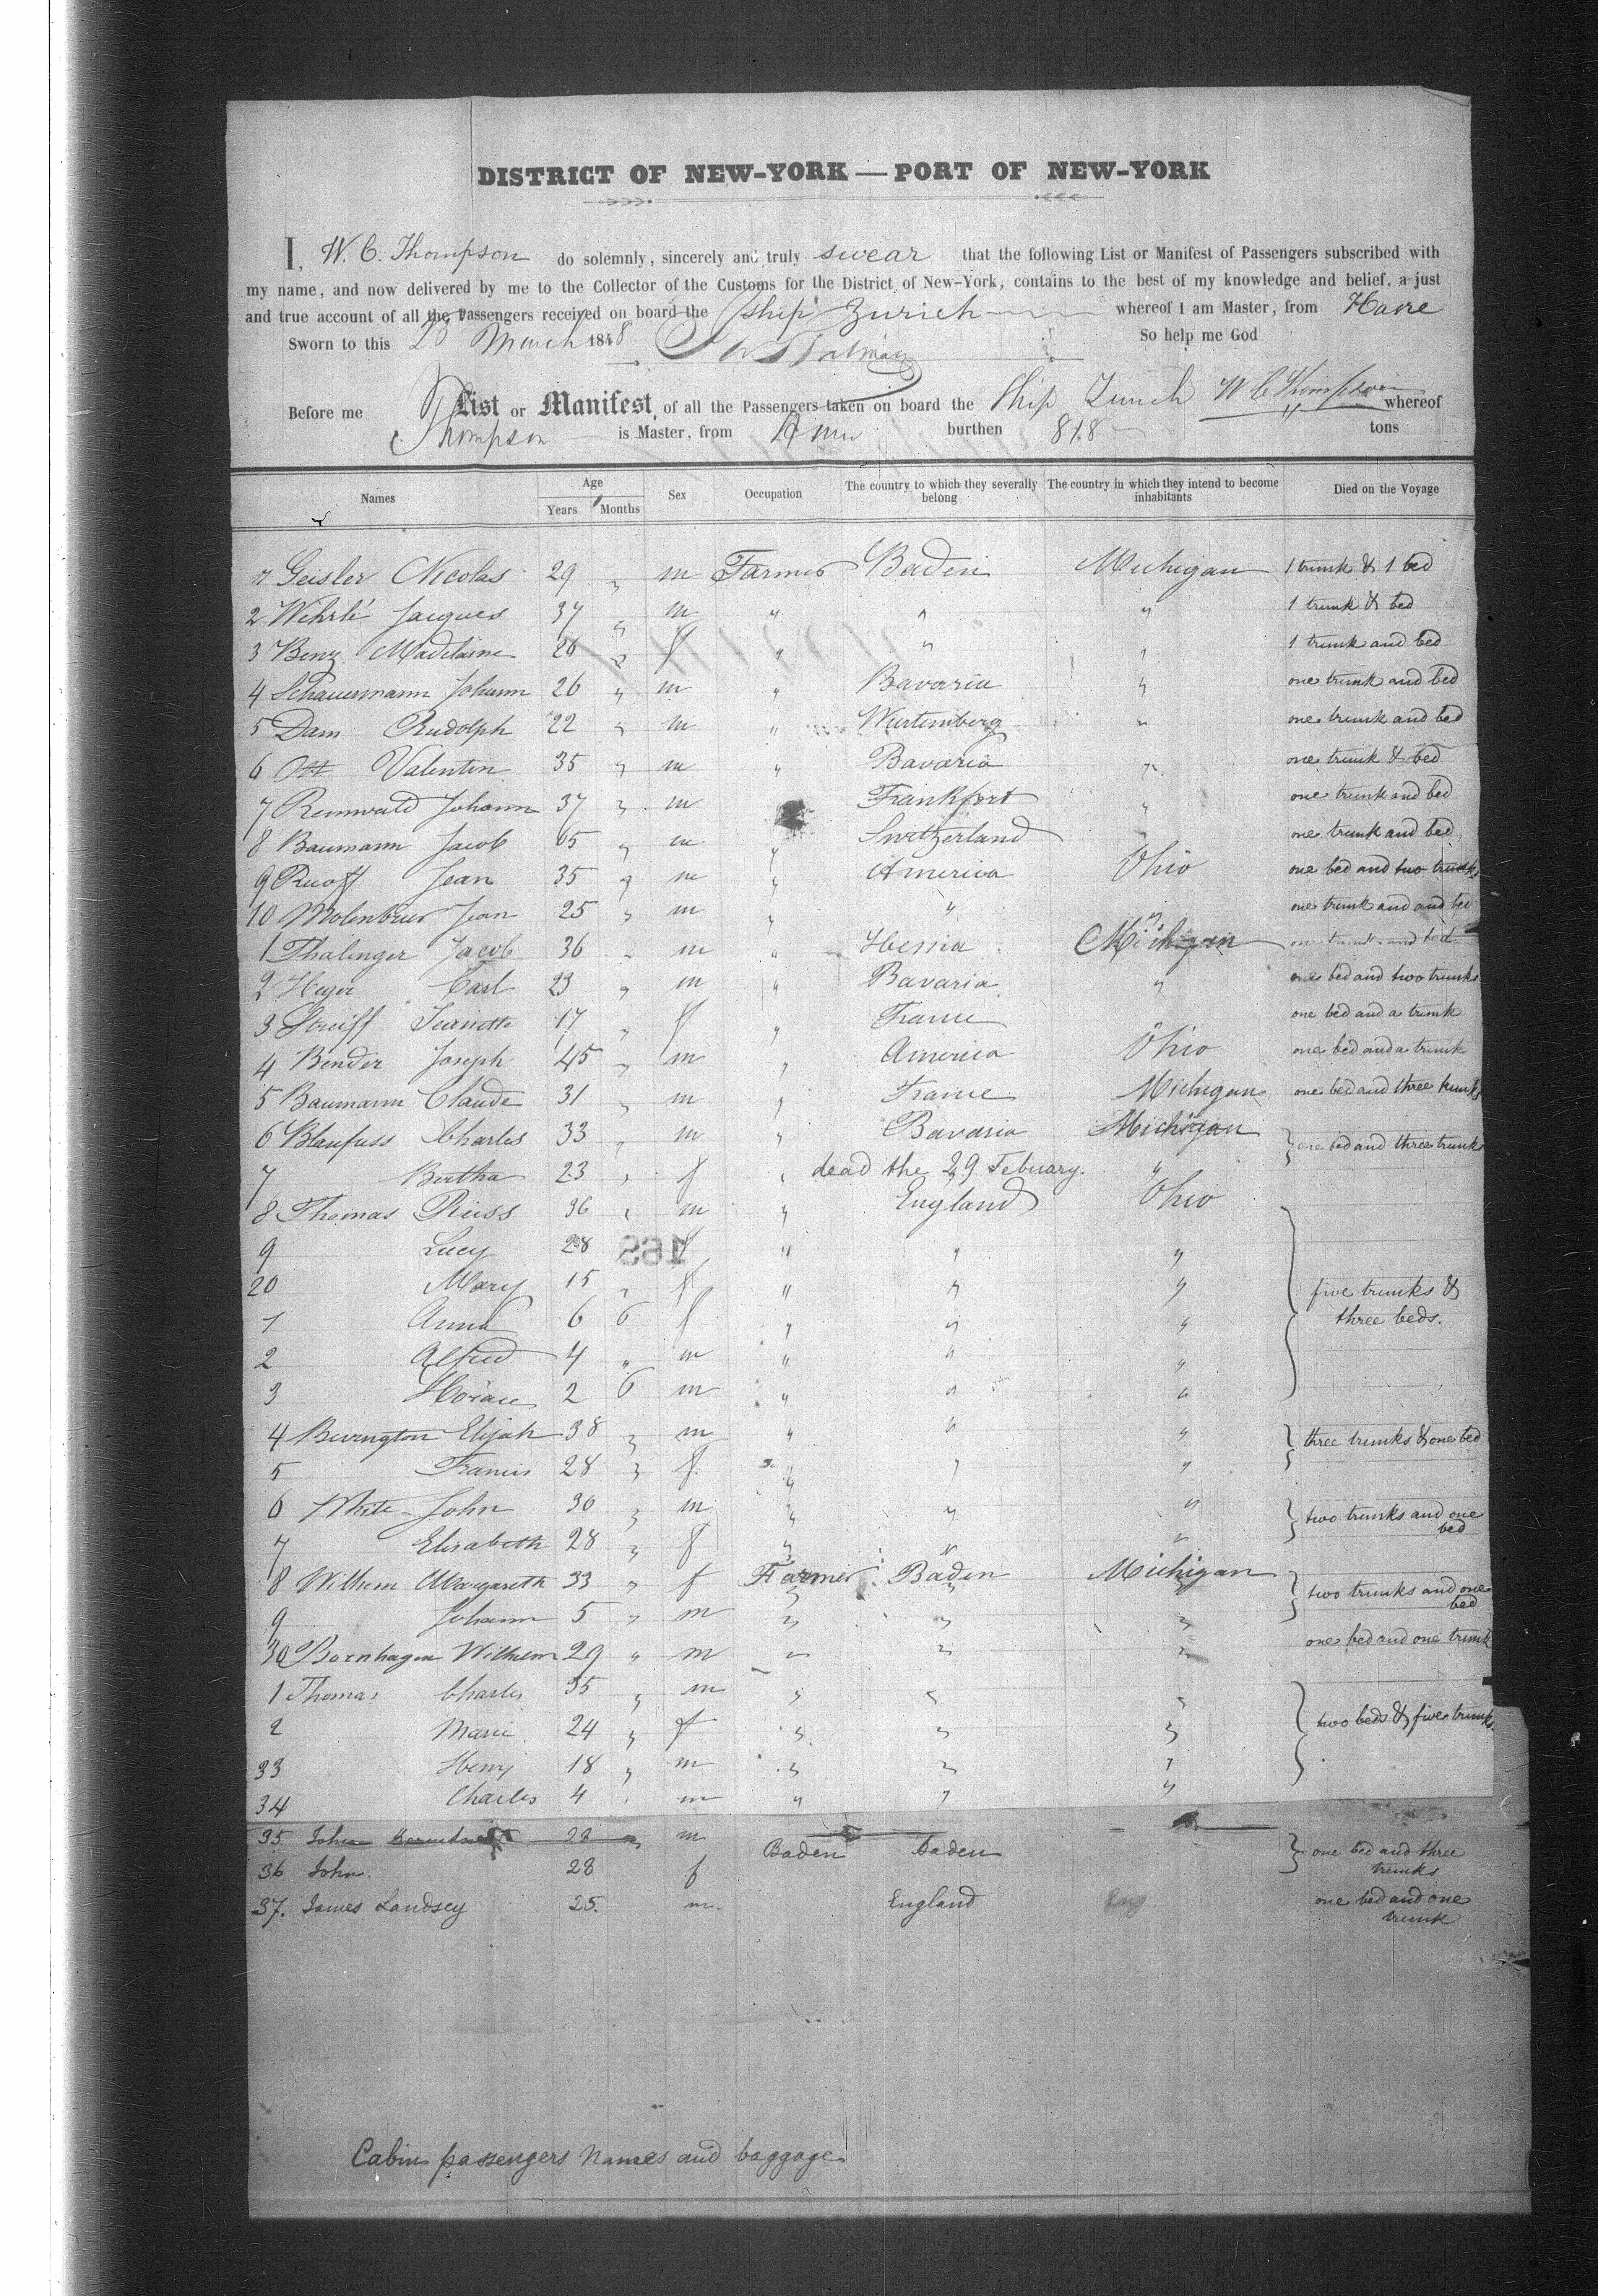 DISTRICT OF NEW-YORK — PORT OF NEW-YORK
I, W. C. Thompson do solemnly, sincerely and truly swear that the following List or Manifest of Passengers subscribed with
my name, and now delivered by me to the Collector of the Customs for the District of New-York, contains to the best of my knowledge and belief, a just
and true account of all the Passengers received on board the Ship Zurich whereof I am Master, from Havre
Sworn to this 20 March 1848 So help me God
W C Thompson
Before me List or Manifest of all the Passengers taken on board the Ship Zurich whereof
Thompson is Master, from Havre burthen 818 tons
Names Age Years Months Sex Occupation The country to which they severally belong The country in which they intend to become inhabitants Died on the Voyage
Geisler Nicolas 29 " m Farmer Baden Michigan 1 trunk & 1 bed
2 Wehrlé Jacques 37 " m " " " 1 trunk & bed
3 Benz Madelaine 26 " f " " " 1 trunk and bed
4 Schauermann Johann 26 " m " Bavaria " one trunk and bed
5 Dam Rudolph 22 " m " Wurtemberg " one trunk and bed
6 Ott Valentin 35 " m " Bavaria " one trunk & bed
7 Reinwald Johann 37 " m Frankfort " one trunk and bed
8 Baumann Jacob 65 " m " Switzerland " one trunk and bed
9 Ruoff Jean 35 " m " America Ohio one bed and two trunks
10 Molenbrur Jean 25 " m " " " one trunk and and bed
1 Thalinger Jacob 36 " m " Hessia Michigan one trunk and bed
2 Heger Carl 23 " m " Bavaria " one bed and two trunks
3 Jeanette 17 " f " France one bed and a trunk
4 Bender Joseph 45 " m " America Ohio one bed and a trunk
5 Baumann Claude 31 " m " France Michigan one bed and three trunks
6 Blaufuss Charles 33 " m " Bavaria Michigan one bed and three trunks
7 Bertha 23 " f " dead the 29 Febuary. "
8 Thomas Reiss 36 " m " England Ohio
9 Lucy 28 f " " "
168
20 Mary 15 " f " " " five trunks &
1 Anna 6 6 f " " " three beds.
2 Alfred 4 " m " " "
3 Horace 2 6 m " " "
4 Bevington Elijah 38 " m " " " three trunks & one bed
5 Francis 28 " f " " "
6 White John 30 " m " " " two trunks and one bed
7 Elisabeth 28 " f " " "
8 Wilhem Margareth 33 " f Farmer Baden Michigan two trunks and one bed
9 Johann 5 " m " " "
30 Bornhagen Wilhem 29 " m " " " one bed and one trunk
1 Thomas Charles 35 " m " " " two beds & five trunks
2 Marie 24 " f " " "
33 Henry 18 " m " " "
34 Charles 4 " m " " "
35 John 28 m
36 John. 28 f Baden Baden one bed and three trunks
37. James Landsey 25. m. England Eng one bed and one trunk
Cabin passengers names and baggage